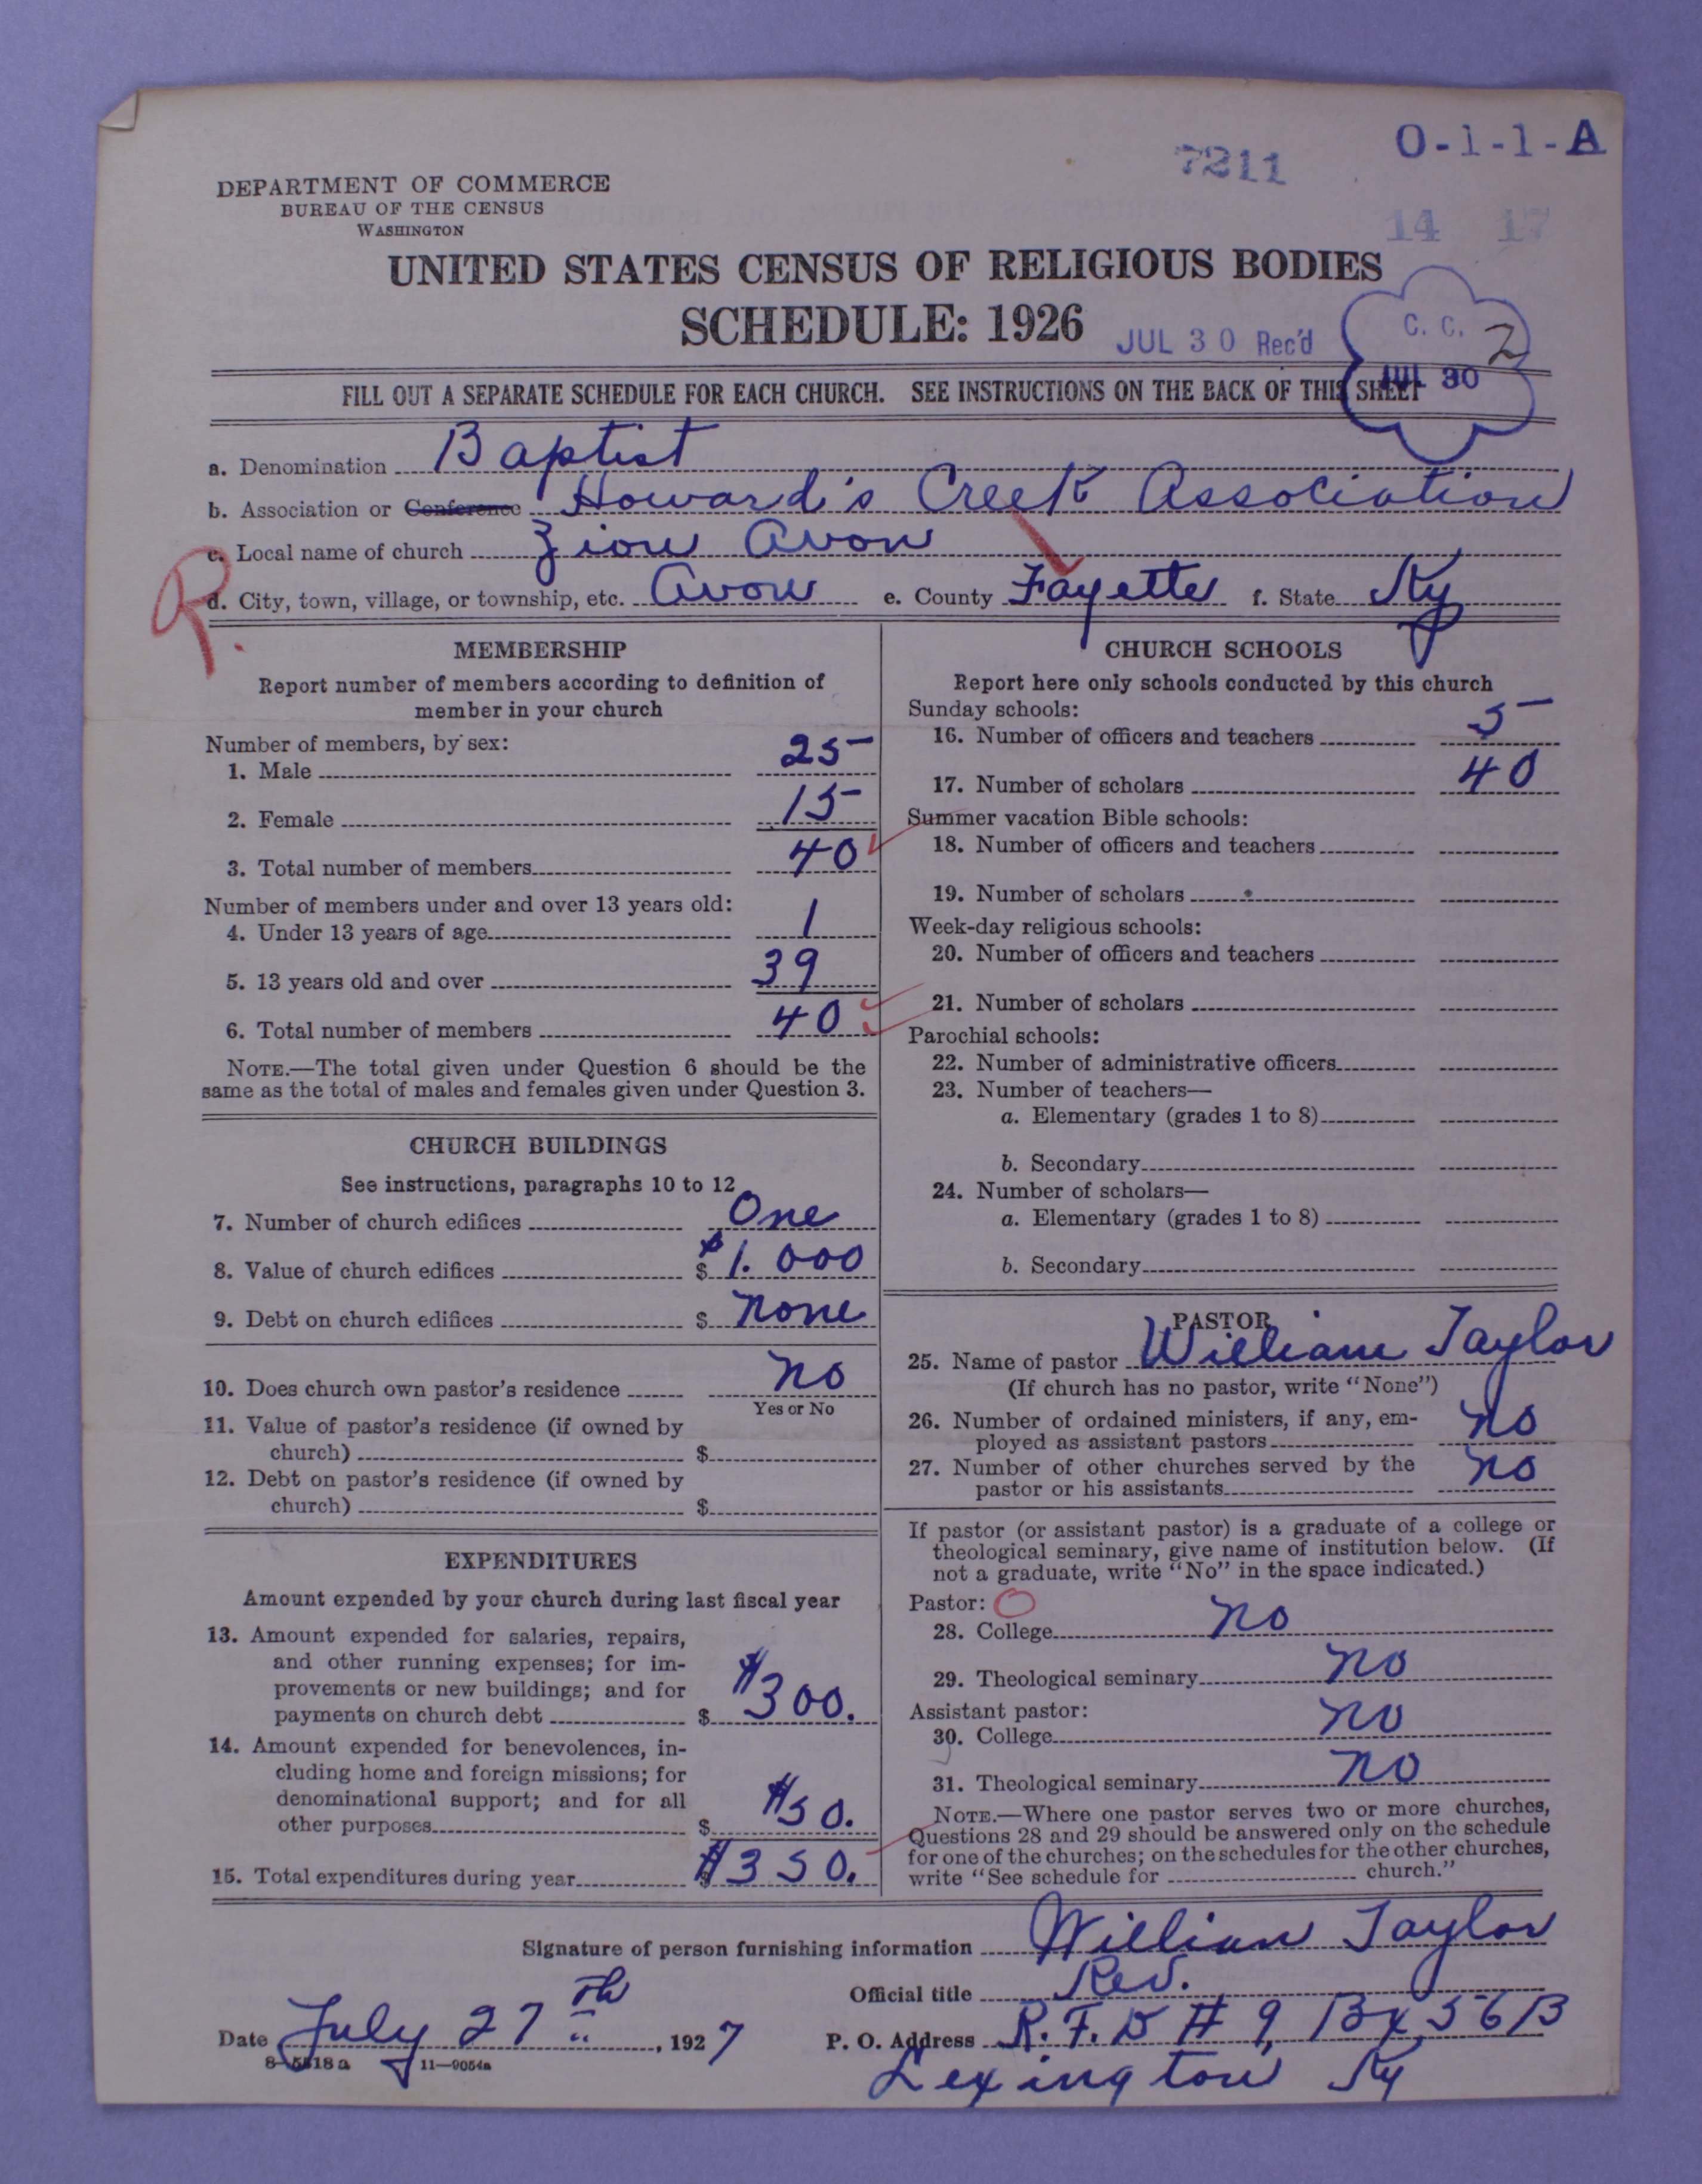 7211
O-1-1-A
14 17
DEPARTMENT OF COMMERCE
BUREAU OF THE CENSUS
WASHINGTON
UNITED STATES CENSUS OF RELIGIOUS BODIES
SCHEDULE: 1926
JUL 30 Rec'd
C. C. 2
JUL 30
FILL OUT A SEPARATE SCHEDULE FOR EACH CHURCH. SEE INSTRUCTIONS ON THE BACK OF THIS SHEET
a. Denomination Baptist
b. Association or Conference Howard's Creek Association
c. Local name of church Zion Avon
R.
d. City, town, village, or township, etc. Avon e. County Fayette f. State Ky
MEMBERSHIP
Report number of members according to definition of
member in your church
Number of members, by sex:
1. Male 25
2. Female 15
3. Total number of members 40
Number of members under and over 13 years old:
4. Under 13 years of age 1
5. 13 years old and over 39
6. Total number of members 40
NOTE.—The total given under Question 6 should be the
same as the total of males and females given under Question 3.
CHURCH BUILDINGS
See instructions, paragraphs 10 to 12
7. Number of church edifices One
8. Value of church edifices $ $1.000
9. Debt on church edifices $ none
10. Does church own pastor's residence no
Yes or No
11. Value of pastor's residence (if owned by
church) $
12. Debt on pastor's residence (if owned by
church) $
EXPENDITURES
Amount expended by your church during last fiscal year
13. Amount expended for salaries, repairs,
and other running expenses; for im-
provements or new buildings; and for
payments on church debt $ $300.
14. Amount expended for benevolences, in-
cluding home and foreign missions; for
denominational support; and for all
other purposes $ $50.
15. Total expenditures during year $ $350.
CHURCH SCHOOLS
Report here only schools conducted by this church
Sunday schools:
16. Number of officers and teachers 5
17. Number of scholars 40
Summer vacation Bible schools:
18. Number of officers and teachers
19. Number of scholars
Week-day religious schools:
20. Number of officers and teachers
21. Number of scholars
Parochial schools:
22. Number of administrative officers
23. Number of teachers—
a. Elementary (grades 1 to 8)
b. Secondary
24. Number of scholars—
a. Elementary (grades 1 to 8)
b. Secondary
PASTOR
25. Name of pastor William Taylor
(If church has no pastor, write "None")
26. Number of ordained ministers, if any, em-
ployed as assistant pastors no
27. Number of other churches served by the
pastor or his assistants no
If pastor (or assistant pastor) is a graduate of a college or
theological seminary, give name of institution below. (If
not a graduate, write "No" in the space indicated.)
Pastor: O
28. College no
29. Theological seminary no
Assistant pastor:
30. College no
31. Theological seminary no
NOTE.—Where one pastor serves two or more churches,
Questions 28 and 29 should be answered only on the schedule
for one of the churches; on the schedules for the other churches,
write "See schedule for church."
Signature of person furnishing information William Taylor
Official title Rev.
Date July 27th, 1927 P. O. Address R. F. D # 9, Bx 56B
8—5518a 11—9054a
Lexington Ky